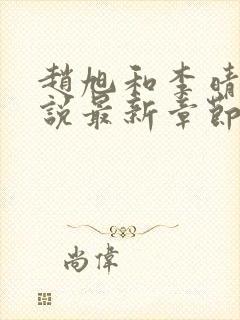 趙旭和李晴
說最新章節
尚偉